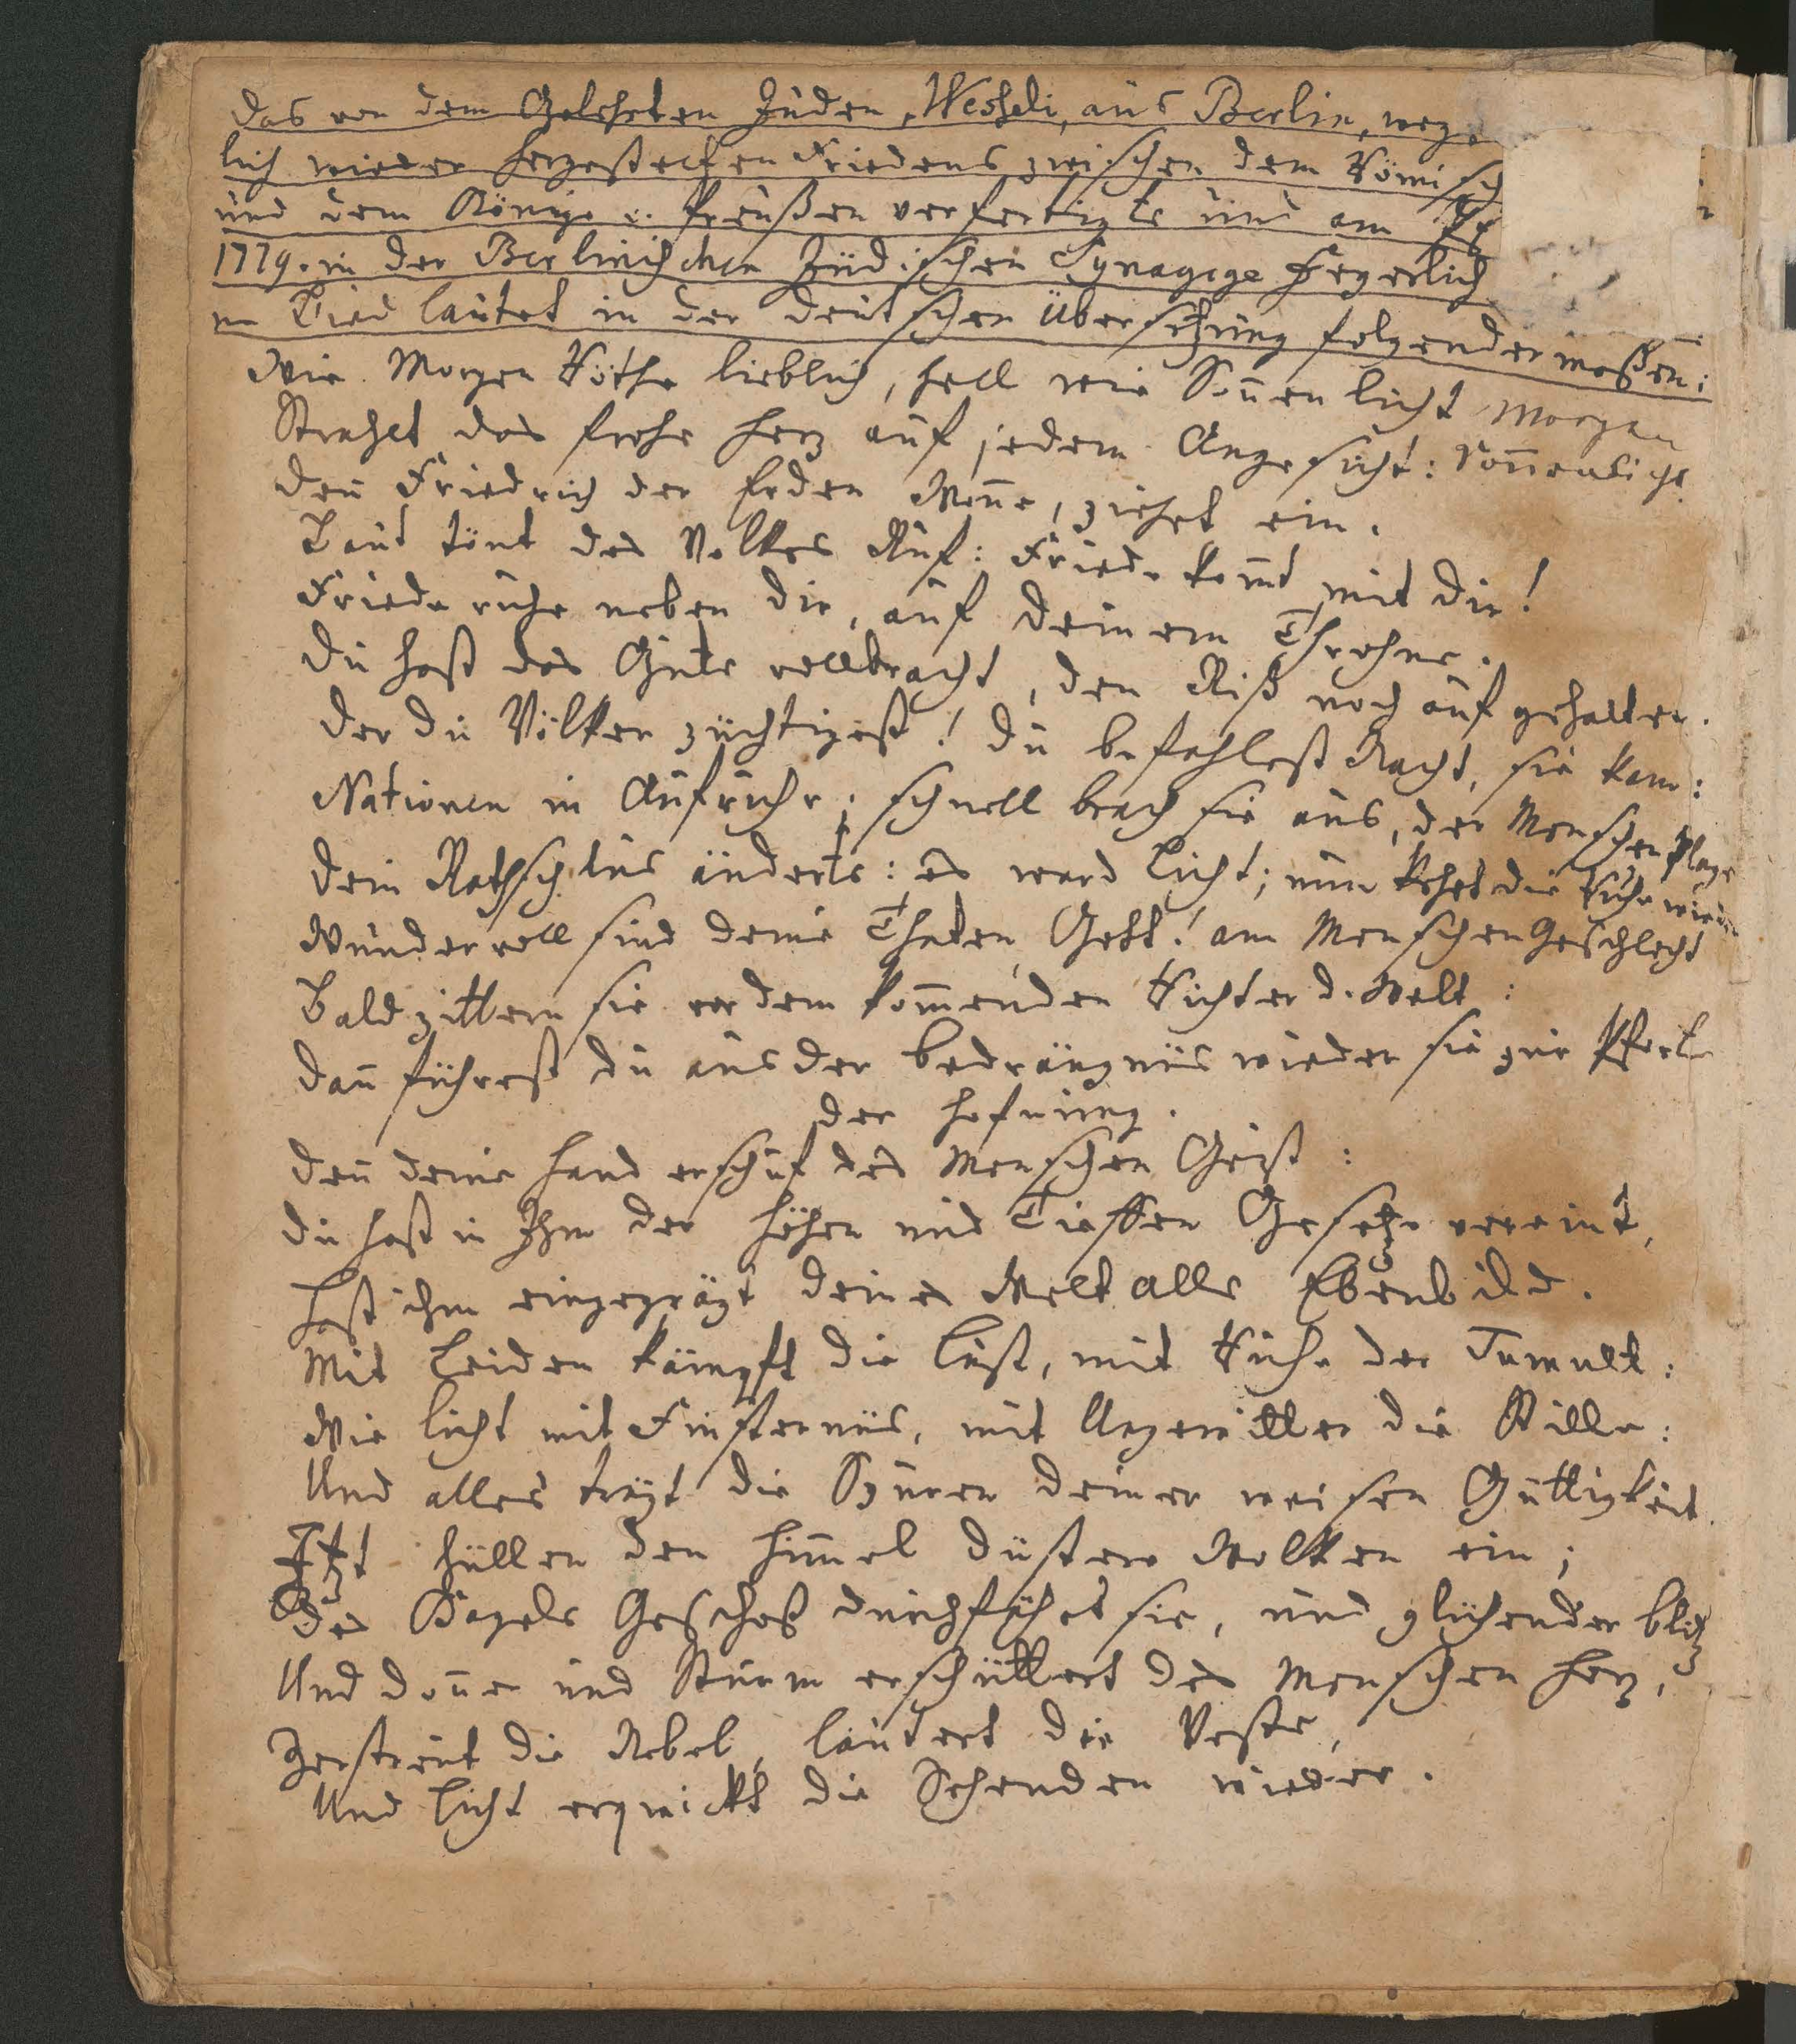 Das von dem Gelehrten Juden, Wesheli, aus Berlin, weg
lich wieder hergestelten Friedens zwischen dem Römisch
und dem Könige v. Preußen verfertigte und am
1779. in der Berlinischen Jüdischen Synagoge Feyerlich
ne Lied lautet in der deutschen Übersetzung folgender maßen:
Wie Morgen Röthe lieblich, hell wie Soñen licht Morgen
Strahlet das frohe Herz auf jedem Angesicht: Soñenlicht
Deñ Friedrich der Erden Woñe, ziehet ein.
Laut tönt des Volkes Ruf: Friede kom̃t mit dir!
Friede ruhe neben dir, auf deinem Throhne.
Du hast das Gute vollbracht, den Riß noch auf gehalten.
Der du Völker züchtigest! du befahlest Nacht, sie kam:
Nationen in Aufruhr; schnell brach sie aus, der Menschen Plage
Dein Rathschlus änderts: es ward Licht; nun kehrt die Ruhe wieder
Wundervoll sind deine Thaten, Gott! am Menschen Geschlecht
Bald zittern sie vor dem kom̃enden Richter d. Welt:
Dañ führest du aus der Bedrängnüs wieder sie zur Pforte
der Hofnung.
Deñ deine Hand erschuf des Menschen Geist:
Du hast in Ihm der Höhen und Tieffen Gesetze vereint,
Hast ihm eingeprägt deines Welt alls Ebenbild.
Mit Leiden kämpft die Lust, mit Ruhe der Tumult:
Wie licht mit Finsternüs, mit Ungewitter die Stille:
Und alles trägt die Spuren deiner weisen Güttigkeit.
Itzt hüllen den Him̃el düstere Wolken ein;
Des Hagels Geschoß durchfährt sie, und glühender Blitz
Und Doñer und Sturm erschüttert des Menschen Herz,
Zerstreut die Nebel, läutert die Veste,
Und Licht erquickt die Sehenden wieder.